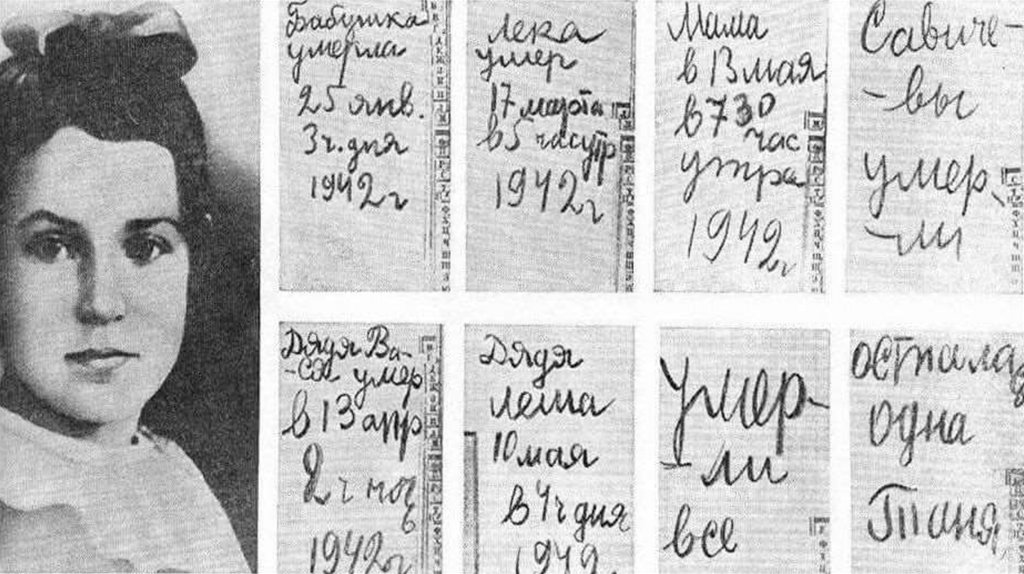 Бабушка
умерла
25 янв.
3 ч. дня
1942 г
Лека
умер
17 марта
в 5 час утр
1942 г
Мама
в 13 мая
в 7 30
час
утра
1942 г
Савиче-
-вы
умер
-ли
Дядя Ва-
-ся умер
в 13 апр
2 ч ноч
1942 г
Дядя
Леша
10 мая
в 4 ч дня
1942
Умер-
-ли
все
Осталась
одна
Таня